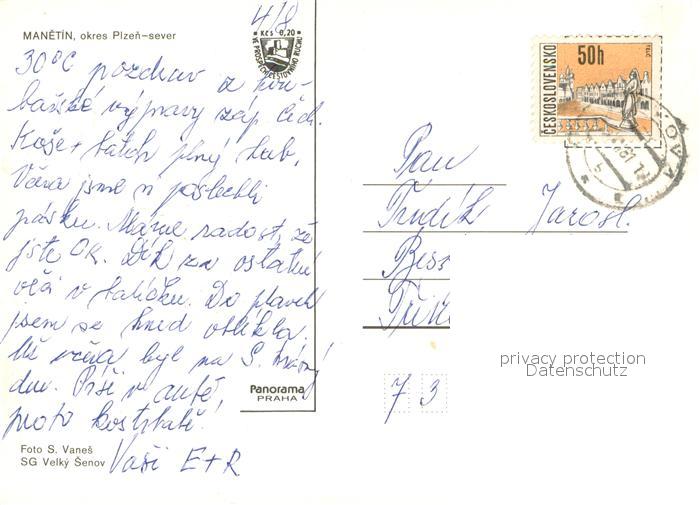 MANĚTÍN, okres Plzeň-sever
4/8
Kčs 0,20
VE PROSPĚCH CESTOVNÍHO RUCHU
30°C pozdrav z hou-
bařské výpravy záp. Čech.
Koše + batoh plný hub.
Včera jsme poslechli
pásku. Máme radost, že
jste OK. Dík za ostatní
věci v balíčku. Do plavek
jsem se hned oblékla,
včera byl na S.
den. Píši v autě,
proto kostrbatě!
Vaši E+R
Panorama
PRAHA
Foto S. Vaneš
SG Velký Šenov
ČESKOSLOVENSKO
50h
TELČ
Pan
Trudík Jarosl.
73
privacy protection
Datenschutz